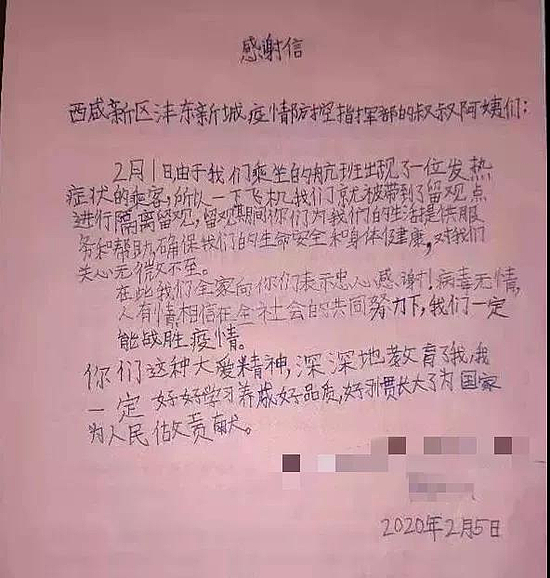 感谢信
西咸新区沣东新城疫情防控指挥部的叔叔阿姨们:
2月1日由于我们乘坐的航班出现了一位发热
症状的乘客,所以一下飞机我们就被带到了留观点
进行隔离留观,留观期间你们为我们的生活提供服
务和帮助,确保我们的生命安全和身体健康,对我们
关心无微不至。
在此我们全家向你们表示忠心感谢!病毒无情,
人有情,相信在全社会的共同努力下,我们一定
能战胜疫情。
你们这种大爱精神,深深地教育了我,我
一定好好学习养成好品质,好习惯长大了为国家
为人民做贡献。
2020年2月5日